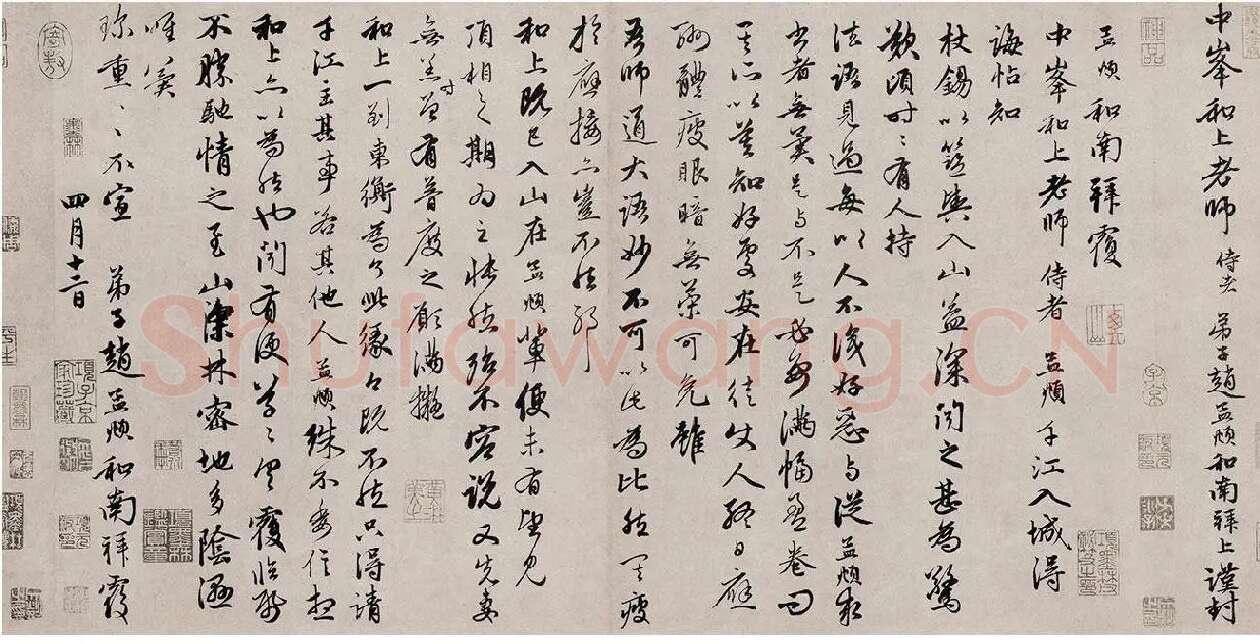 中峯和上老師 侍者 弟子趙孟頫和南拜上謹封
孟頫和南拜覆
中峯和上老師 侍者 孟頫千江入城得
誨帖知
杖錫以籃輿入山益深聞之甚為驚
歎頃時時有人持
法語見過每以人不識好惡與從孟頫求
書者無異是與不是必要滿幅盈卷問
其所以莫知好處安在徒使人終日應
酬體疲眼暗無策可免雖
吾師道大語妙不可以此為比然其疲
於應接亦豈不然邪
和上既已入山在孟頫輩便未有望見
頂相之期為之悵然殆不容說又先妻
無恙時曾有普度之願滿擬
和上一到東衡為了此緣今既不然只得請
千江主其事若其他人孟頫殊不委信想
和上亦以為然也聞有便草草具覆臨紙
不勝馳情之至山深林密地多陰濕
唯冀
珍重珍重不宣 弟子趙孟頫和南拜覆
四月十二日
Shufawang.CN